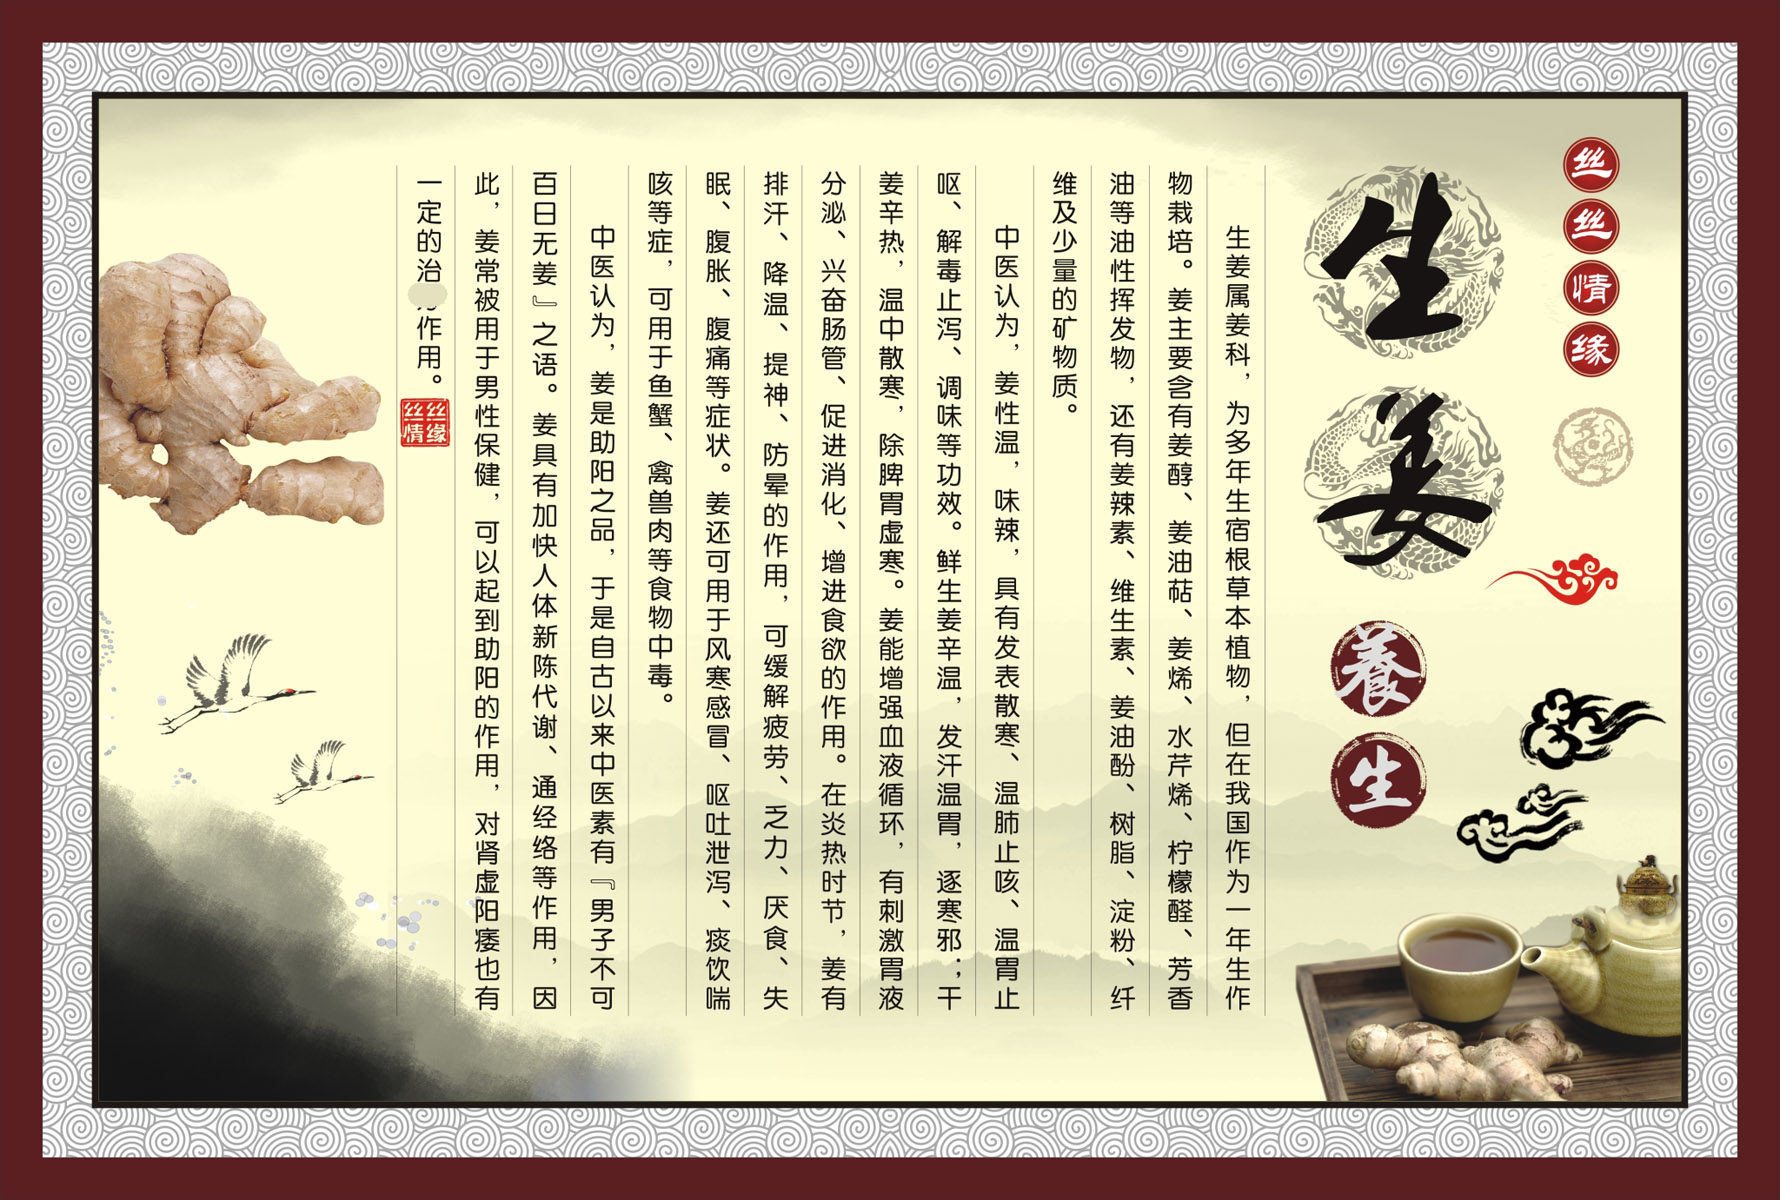 丝丝情缘
生姜
養生
生姜属姜科，为多年生宿根草本植物，但在我国作为一年生作
物栽培。姜主要含有姜醇、姜油萜、姜烯、水芹烯、柠檬醛、芳香
油等油性挥发物，还有姜辣素、维生素、姜油酚、树脂、淀粉、纤
维及少量的矿物质。
中医认为，姜性温，味辣，具有发表散寒、温肺止咳、温胃止
呕、解毒止泻、调味等功效。鲜生姜辛温，发汗温胃，逐寒邪；干
姜辛热，温中散寒，除脾胃虚寒。姜能增强血液循环，有刺激胃液
分泌、兴奋肠管、促进消化、增进食欲的作用。在炎热时节，姜有
排汗、降温、提神、防晕的作用，可缓解疲劳、乏力、厌食、失
眠、腹胀、腹痛等症状。姜还可用于风寒感冒、呕吐泄泻、痰饮喘
咳等症，可用于鱼蟹、禽兽肉等食物中毒。
中医认为，姜是助阳之品，于是自古以来中医素有『男子不可
百日无姜』之语。姜具有加快人体新陈代谢、通经络等作用，因
此，姜常被用于男性保健，可以起到助阳的作用，对肾虚阳痿也有
一定的治作用。
丝丝情缘